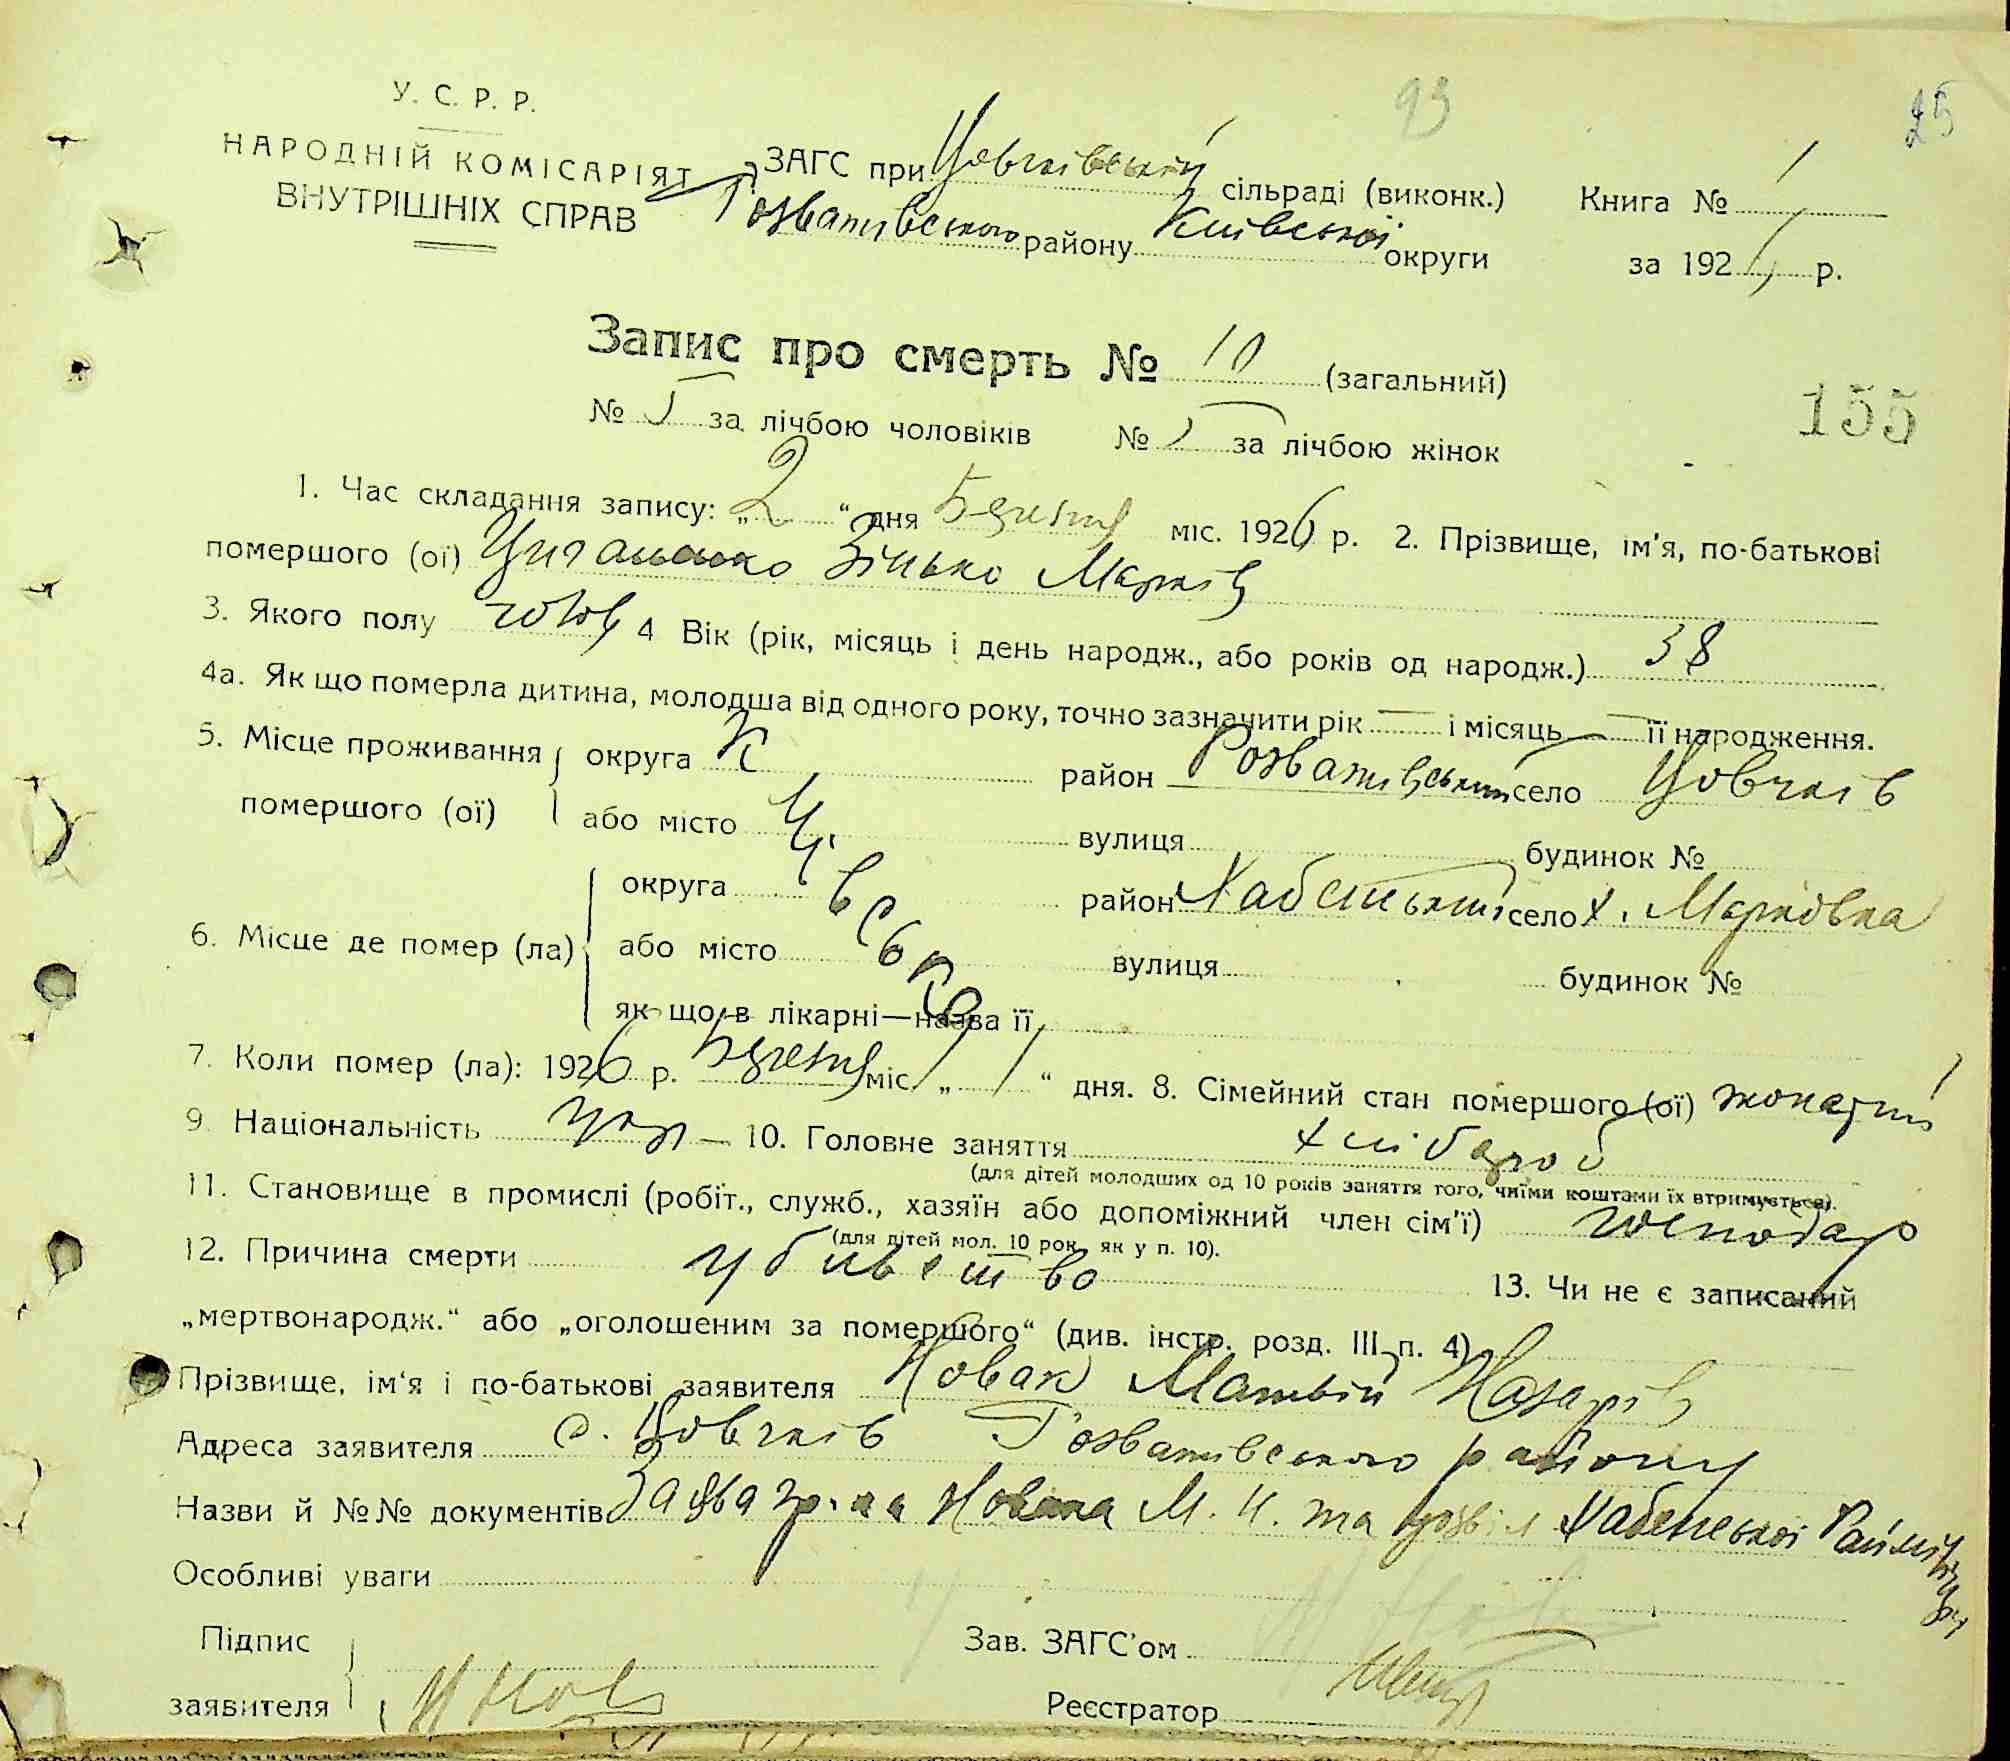 93
25
У. С. Р. Р.
НАРОДНІЙ КОМІСАРІЯТ
ВНУТРІШНІХ СПРАВ
ЗАГС при Цовчківській сільраді (виконк.) Книга № 1
Розважівського району Київської округи за 1926 р.
Запис про смерть № 10 (загальний)
155
№ 5 за лічбою чоловіків № 5 за лічбою жінок
1. Час складання запису: „2“ дня Березня міс. 1926 р. 2. Прізвище, ім'я, по-батькові
помершого (ої) Циганко Зінько Марків
3. Якого полу чолов 4 Вік (рік, місяць і день народж., або років од народж.) 38
4а. Як що померла дитина, молодша від одного року, точно зазначити рік — і місяць — її народження.
5. Місце проживання округа район Розважівський село Цовчків
помершого (ої) або місто вулиця будинок №
округа район Хабенський село х. Марковка
6. Місце де помер (ла) або місто вулиця будинок №
Київська
як що в лікарні—назва її
7. Коли помер (ла): 1926 р. Березня міс. „1“ дня. 8. Сімейний стан помершого (ої) жонатий
9. Національність укр — 10. Головне заняття хлібороб
(для дітей молодших од 10 років заняття того, чиїми коштами їх втримується).
11. Становище в промислі (робіт., служб., хазяїн або допоміжний член сім'ї) господар
(для дітей мол. 10 рок. як у п. 10).
12. Причина смерти убивство 13. Чи не є записаний
„мертвонародж.“ або „оголошеним за помершого“ (див. інстр. розд. III, п. 4)
Прізвище, ім'я і по-батькові заявителя Новак Матвій Назарів
Адреса заявителя с. Цовчків Розважівського району
Назви й №№ документів Заява гр-на Новака М. Н. та дозвіл Хабенської Райміліції
Особливі уваги
Підпис Зав. ЗАГС'ом
заявителя М Нов Реєстратор